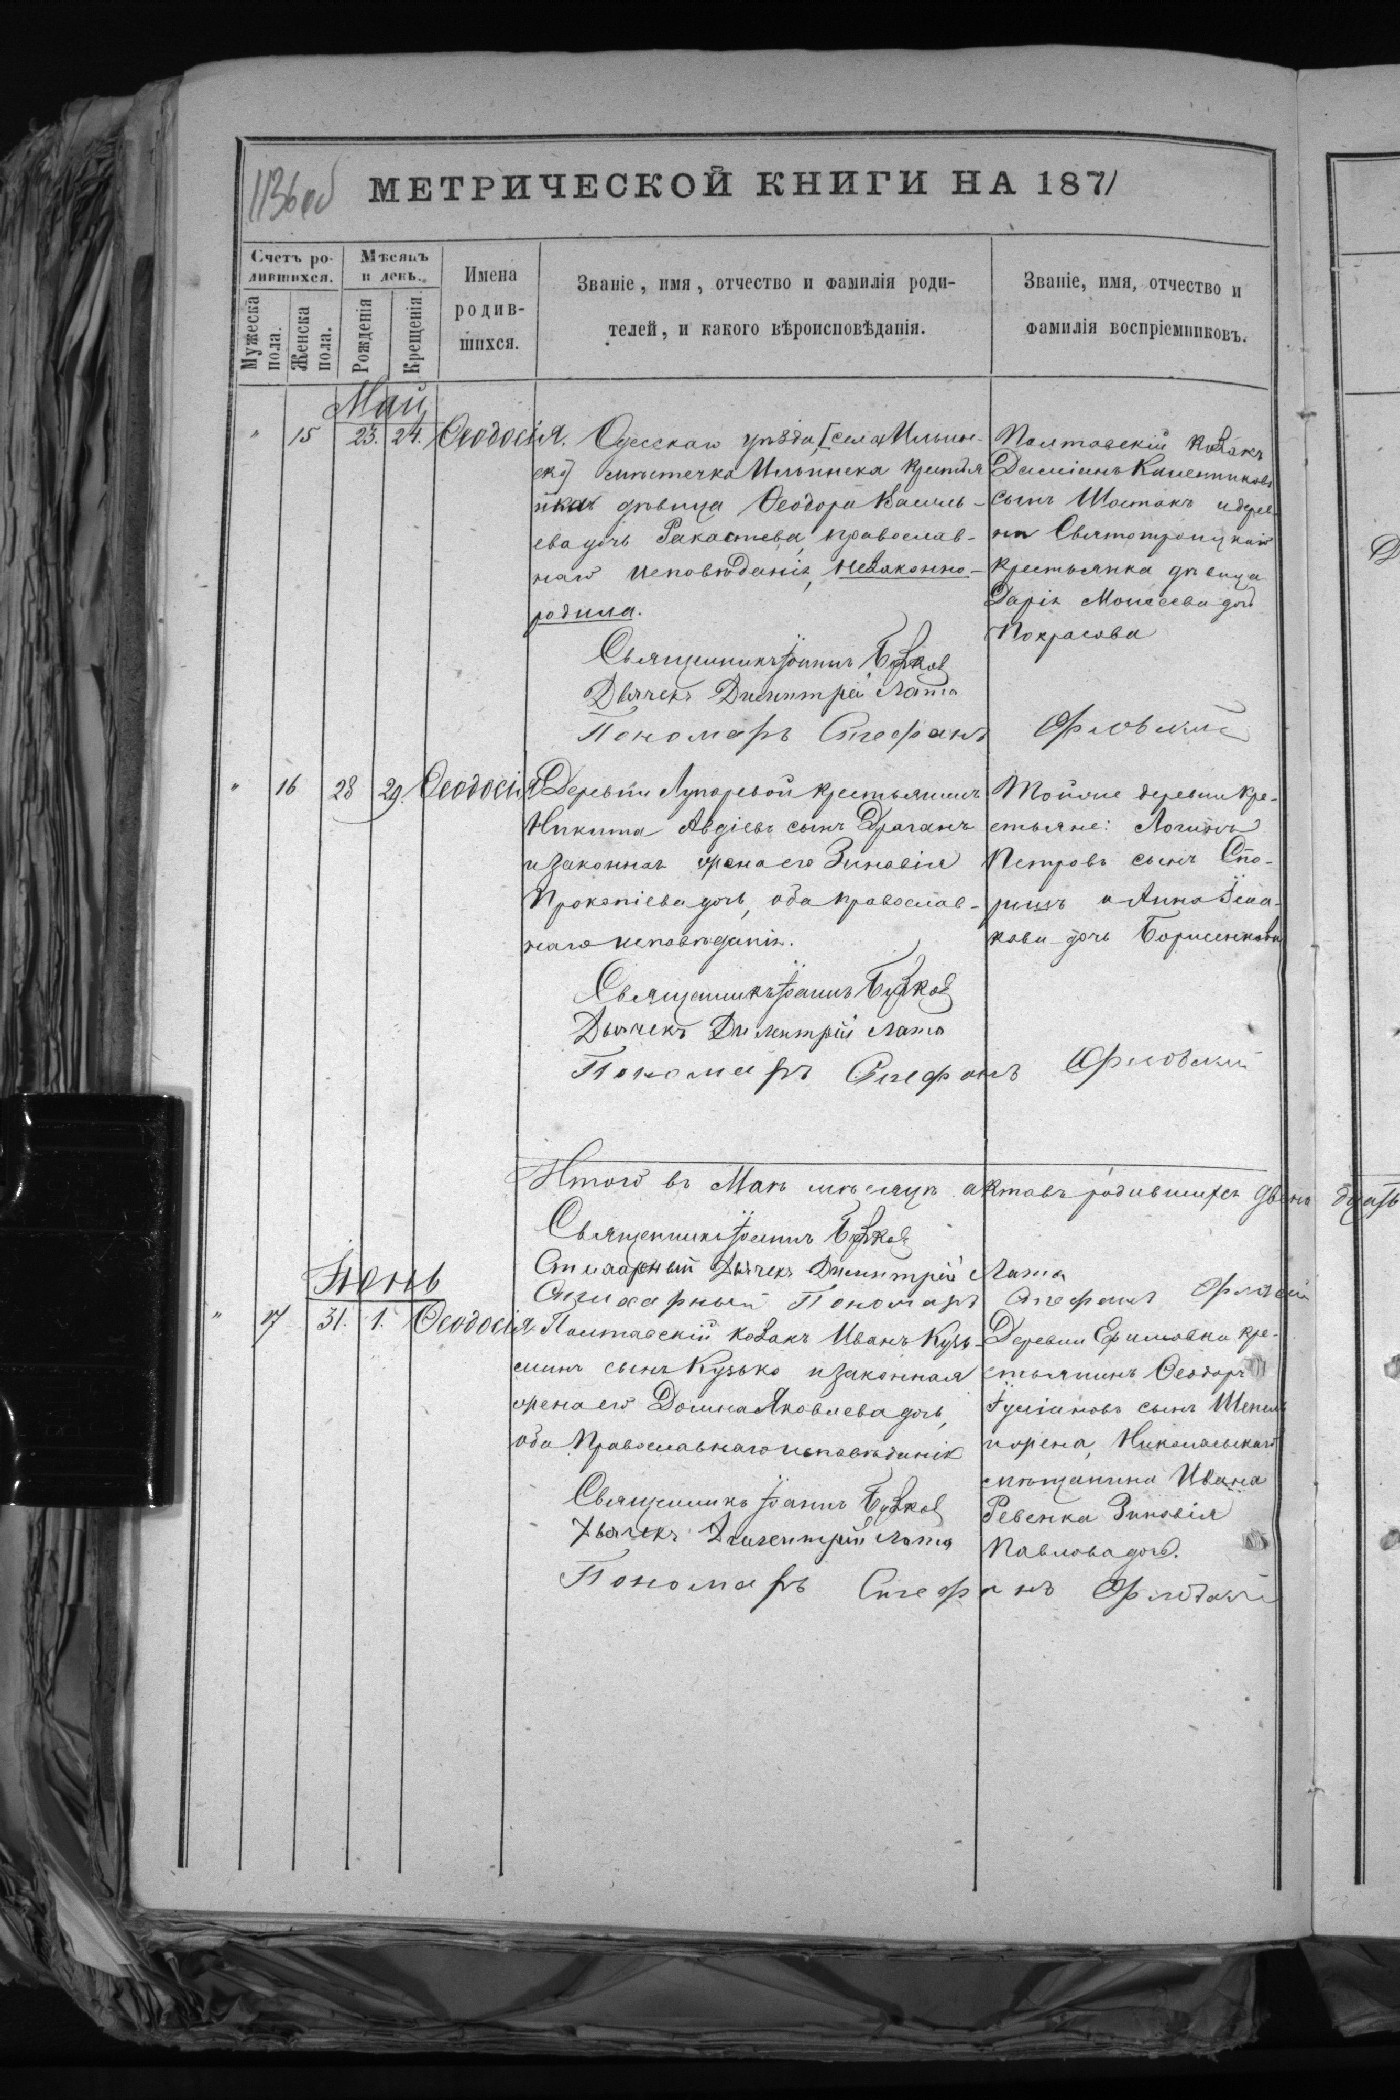 1136об
МЕТРИЧЕСКОЙ КНИГИ НА 1871
Счетъ ро-
дившихся.
Мужеска пола.
Женска пола.
Мѣсяцъ
и день.
Рожденія
Крещенія
Имена
родив-
шихся.
Званіе, имя, отчество и фамилія роди-
телей, и какого вѣроисповѣданія.
Званіе, имя, отчество и
фамилія воспріемниковъ.
Май
" 15 23. 24. Ѳеодосія.
Одесскаго уѣзда, [села Ильин-
ск] мѣстечка Ильинска крестья
нка дѣвица Ѳеодора Василь-
ева дочь, православ-
наго исповѣданія, незаконно-
родила.
Священникъ Іоаннъ Бузков
Дьячекъ Димитрій Лата
Пономарь Стефанъ Орловскій
Полтавскій козакъ
Даміанъ
сынъ Шостакъ и дерев-
ни Святотроицкой
крестьянка дѣвица
Дарія Моисеева дочь
Покрасова
" 16 28 29. Ѳеодосія
Деревни Лупаревой крестьянинъ
Никита Авдіевъ сынъ Драганъ
и законная жена его Зиновія
Прокопіева дочь, оба православ-
наго исповѣданія.
Священникъ Іоаннъ Бузков
Дьячекъ Димитрій Лата
Пономарь Стефанъ Орловскій
Тойже деревни кре-
стьяне: Логинъ
Петровъ сынъ Спо-
ришъ и Анна Іса-
кова дочь Борисенкова
Итого въ Маѣ мѣсяцѣ актовъ родившихся двѣнадцать
Священникъ Іоаннъ Бузков
Стихарный Дьячекъ Димитрій Лата
Стихарный Пономарь Стефанъ Орловскій
Іюнь
" 17 31. 1. Ѳеодосія
Полтавскій козакъ Иванъ Кузь-
минъ сынъ Кузько и законная
жена его Домна Яковлева дочь,
оба Православнаго исповѣданія
Священникъ Іоаннъ Бузков
Дьячекъ Димитрій Лата
Пономарь Стефанъ Орловскій
Деревни Ефимовки кре-
стьянинъ Ѳеодоръ
Іуліановъ сынъ Шепель
и жена, Николаевскаго
мѣщанина Ивана
Ревенка Зиновія
Павлова дочь.